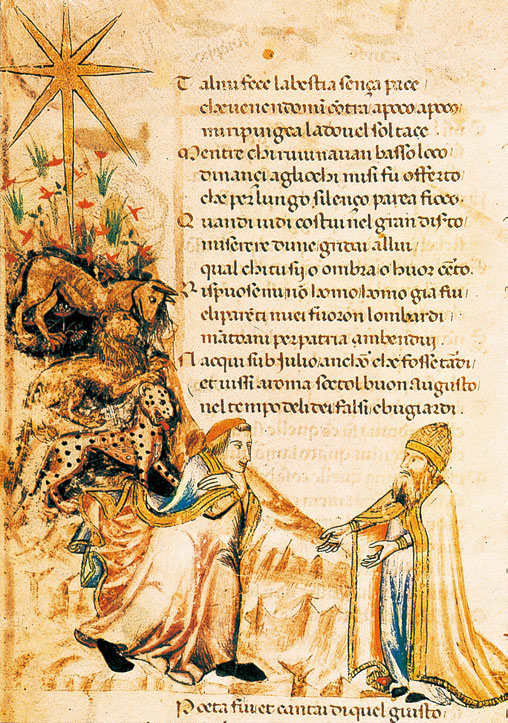 Tal mi fece la bestia sença pace
che venendomi contra a poco a poco
mi ripingea la dove l sol tace
Mentre chi ruvinava in basso loco
dinanci agliochi misi fu offerto
che per lungo silenço parea fioco.
Quandi vidi costui nel gran diserto
miserere di me gridai allui
qual chi tu sii o ombra o huor certo.
Rispuosemi nō homo homo gia fui
e li parēti miei furon lombardi
mātoani per patria ambendui.
Nacqui sub Julio anchor che fosse tardi
et vissi a roma socto l buon Augusto
nel tempo deli dei falsi e bugiardi.
Poeta fui et cantai di quel giusto